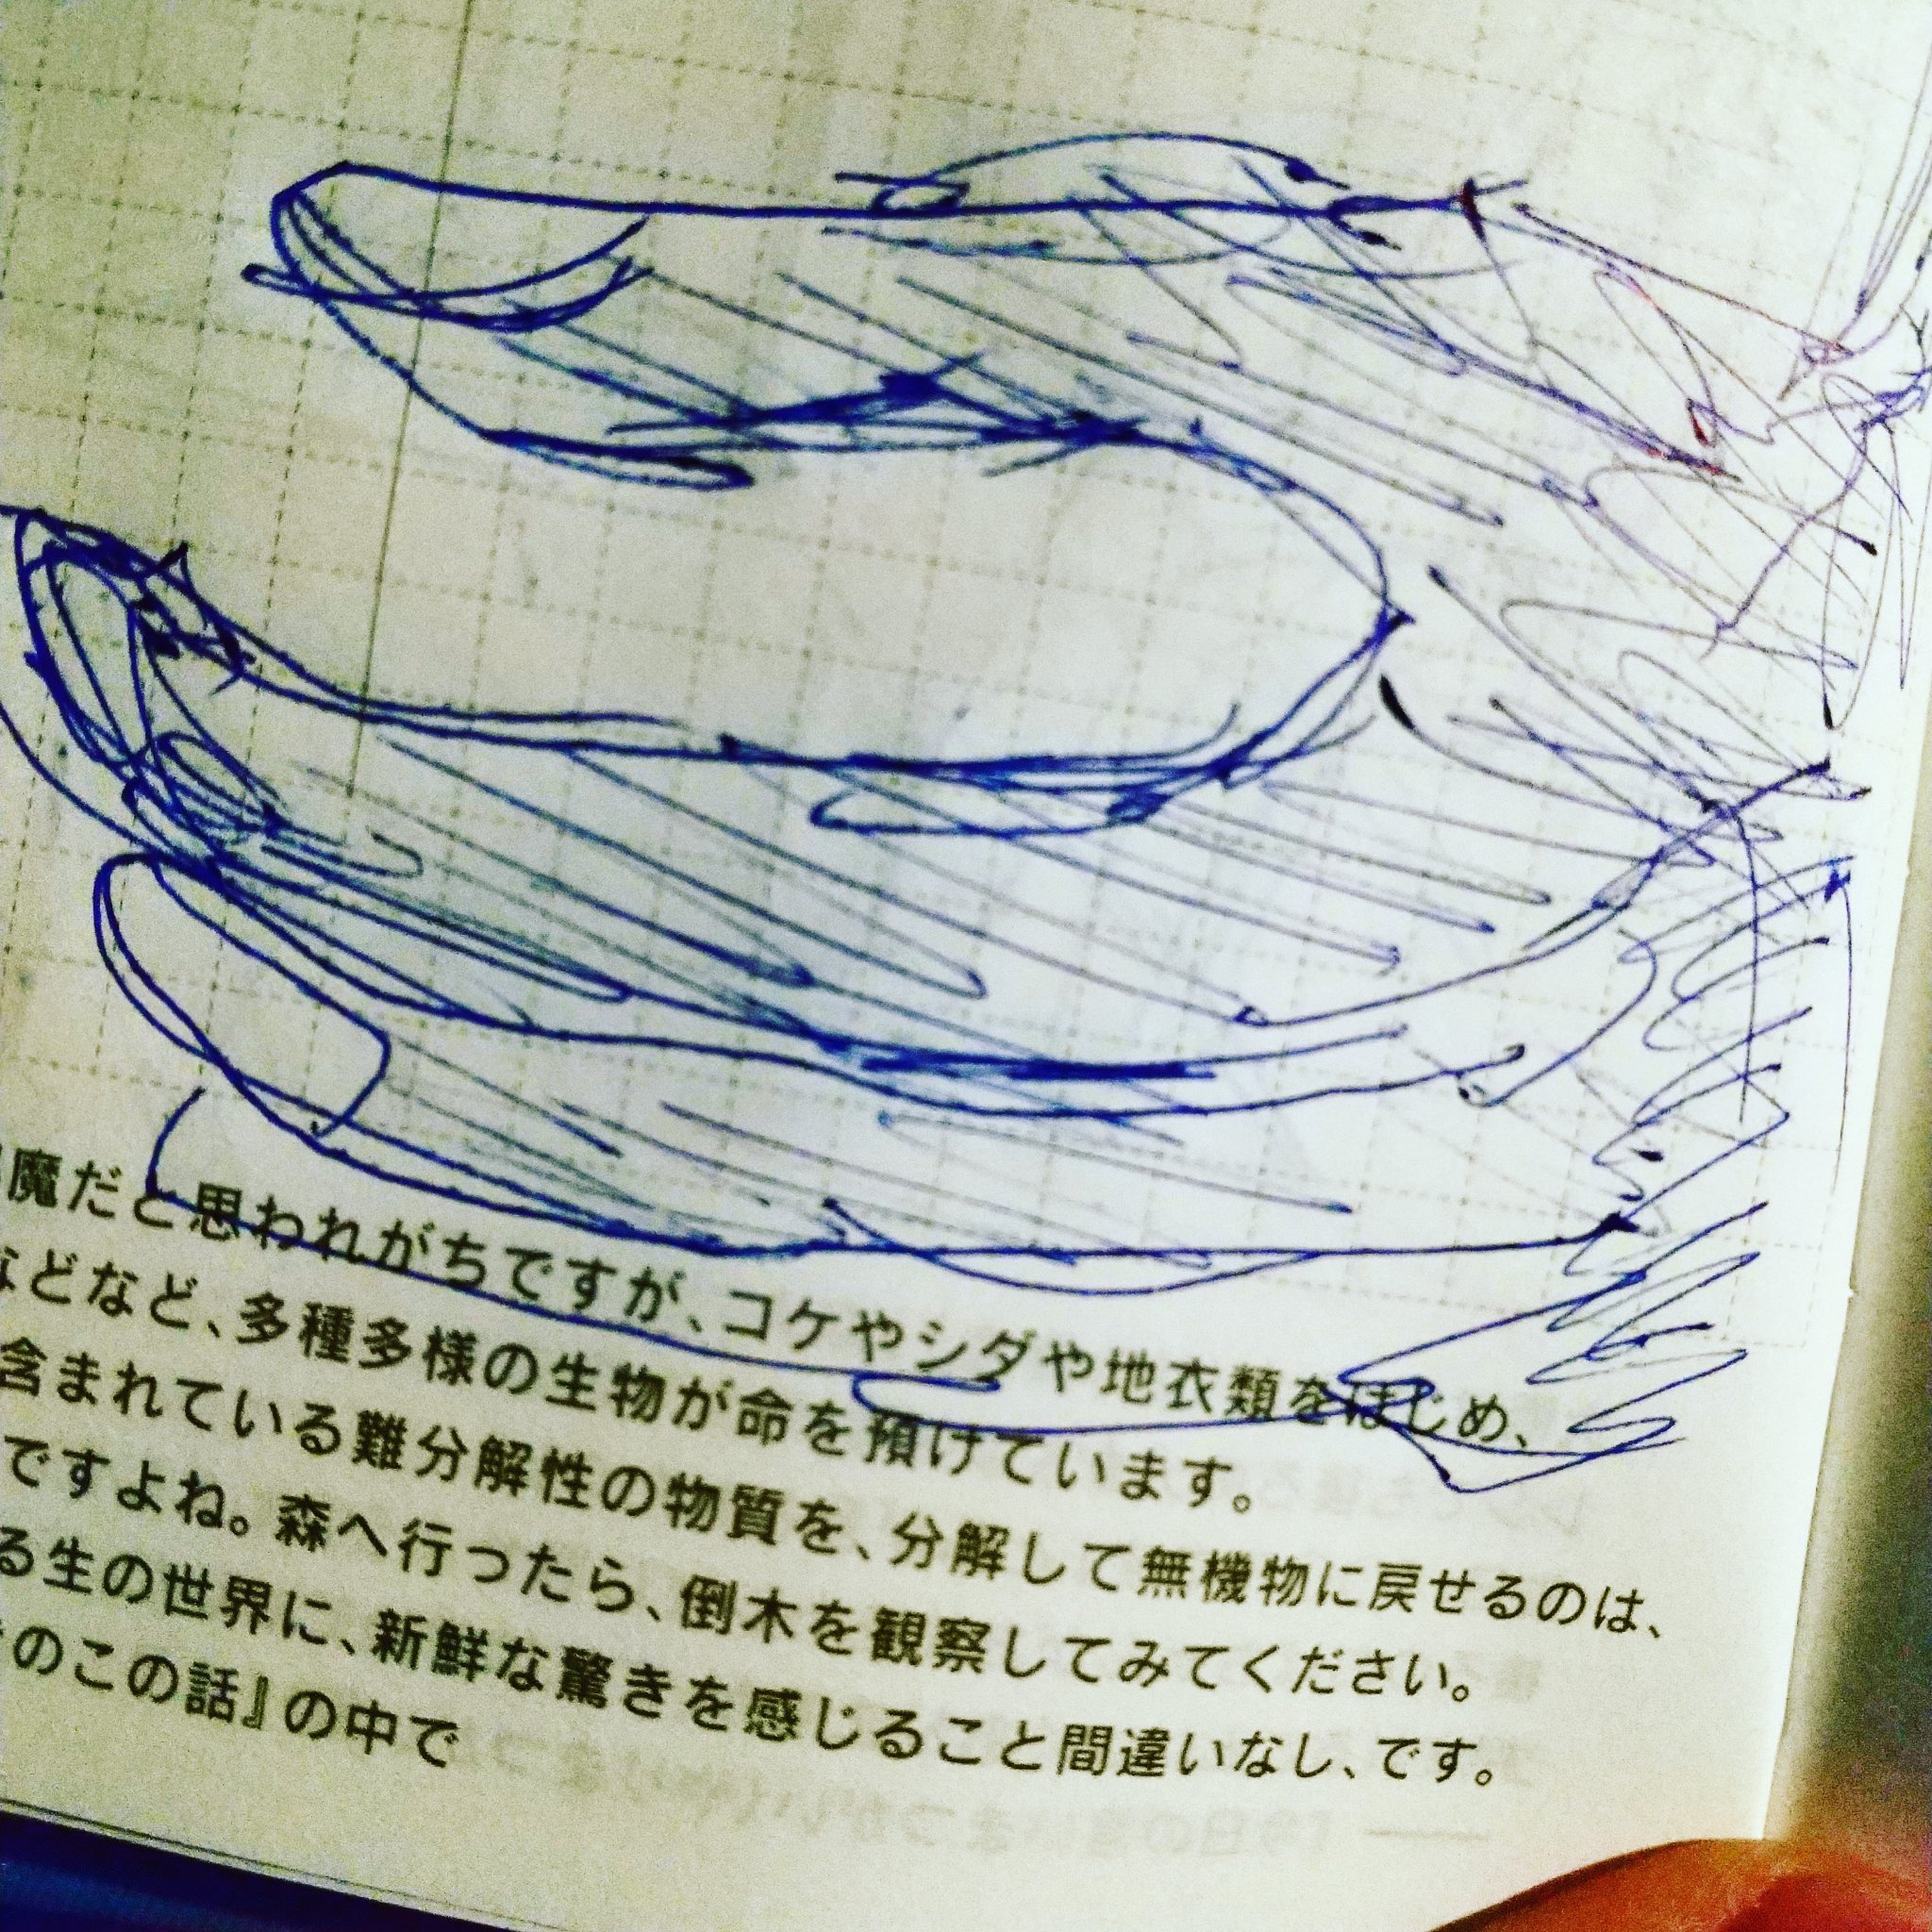 魔だと思われがちですが、コケやシダや地衣類をはじめ、
などなど、多種多様の生物が命を預けています。
含まれている難分解性の物質を、分解して無機物に戻せるのは、
ですよね。森へ行ったら、倒木を観察してみてください。
る生の世界に、新鮮な驚きを感じること間違いなし、です。
のこの話』の中で